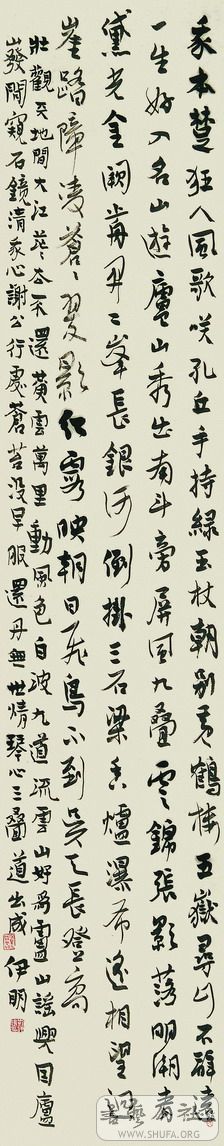 我本楚狂人風歌咲孔丘手持綠玉杖朝別黃鶴樓五嶽尋仙不辭遠
一生好入名山遊廬山秀出南斗旁屏風九疊雲錦張影落明湖青
黛光金闕前開二峯長銀河倒掛三石梁香爐瀑布遙相望迴
崖蹈障凌蒼蒼翠影紅霞映朝日飛鳥不到吳天長登高
壯觀天地間大江茫茫去不還黃雲萬里動風色白波九道流雲山好為廬山謠興因廬
山發閒窺石鏡清我心謝公行處蒼苔沒早服還丹無世情琴心三疊道出成 伊明
書藝公社
WWW.SHUFA.ORG